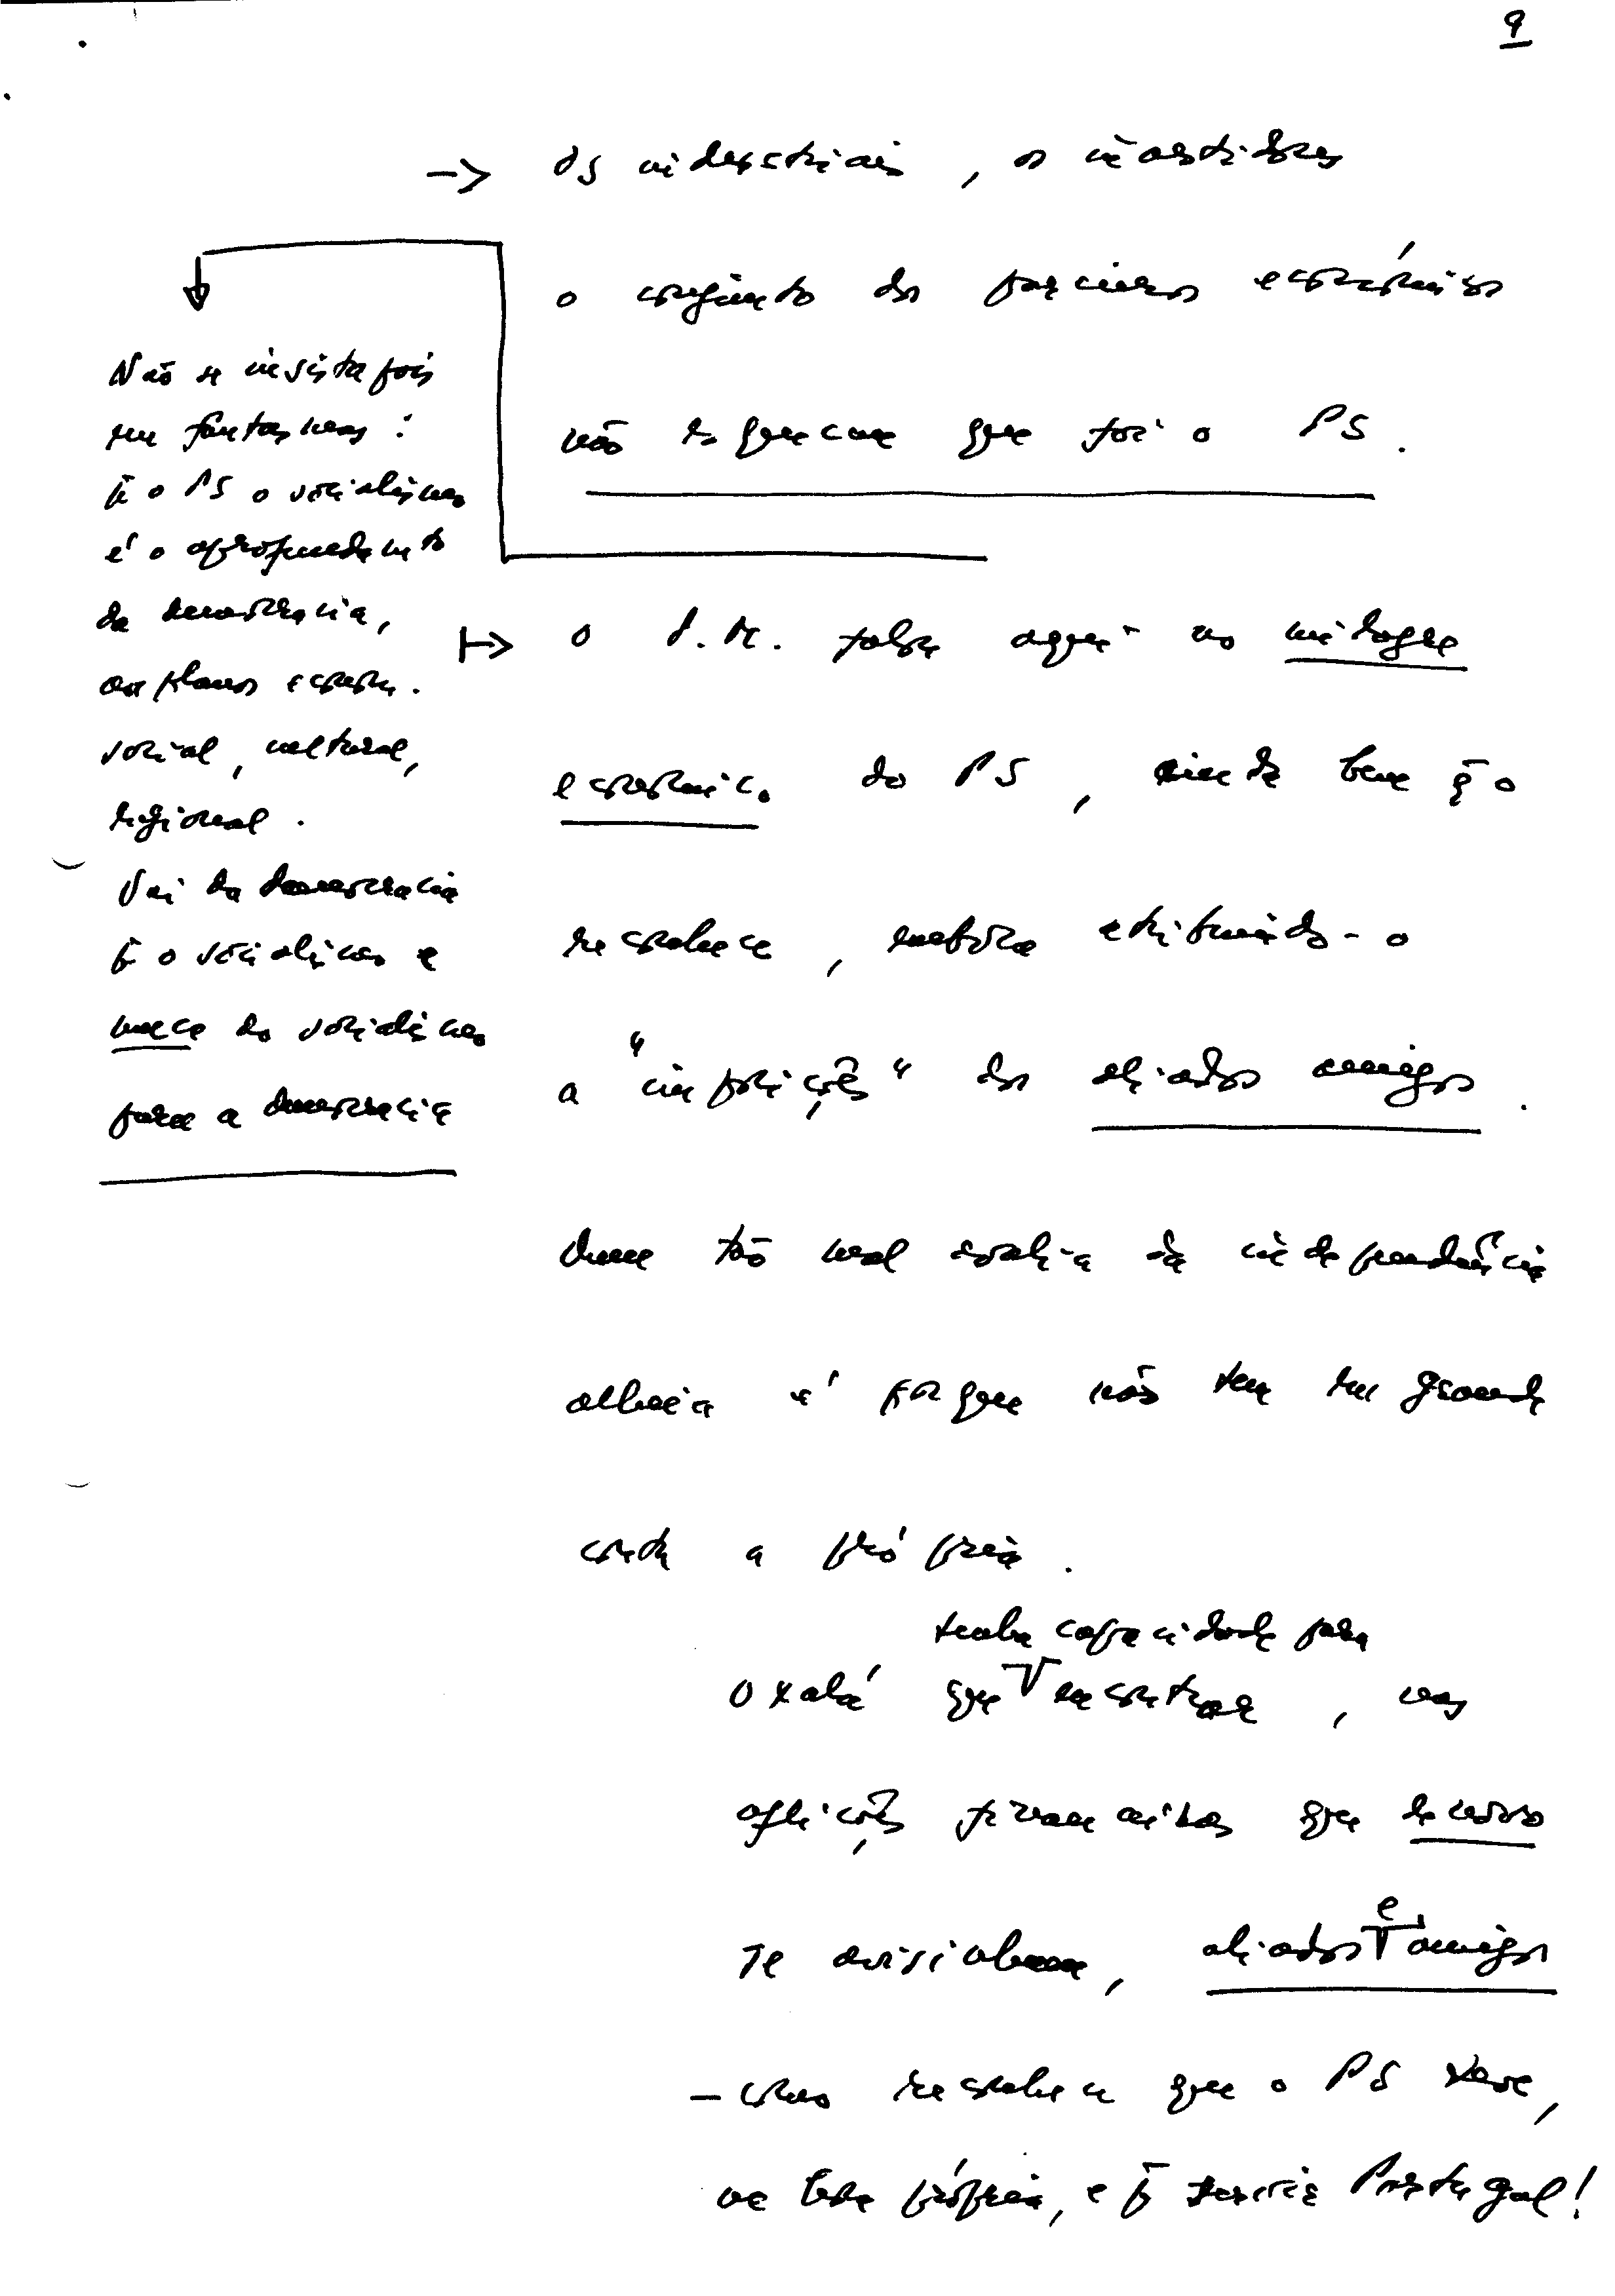 9
→ os industriais, os investidores
o conjunto dos parceiros económicos
não esquecem que foi o PS.
Não se insista pois
em fantasmas:
p̄ o PS o socialismo
é o aprofundamento
da democracia,
nos planos econom.
social, cultural,
regional.
Vai da democracia
p̄ o socialismo e
nunca do socialismo
para a democracia
↦ o P.M. falou aqui no milagre
económico do PS, ainda bem q̄ o
reconhece, embora atribuindo-o
a "imposições" dos aliados amigos.
Quem tão mal avalia da independência
alheia é porque não tem em grande
conta a própria.
tenha capacidade para
Oxalá que encontrar, nas
aflições governativas que de novo
se avizinham, aliados e amigos
- como reconhece que o PS teve,
na hora própria, e p̄ servir Portugal!